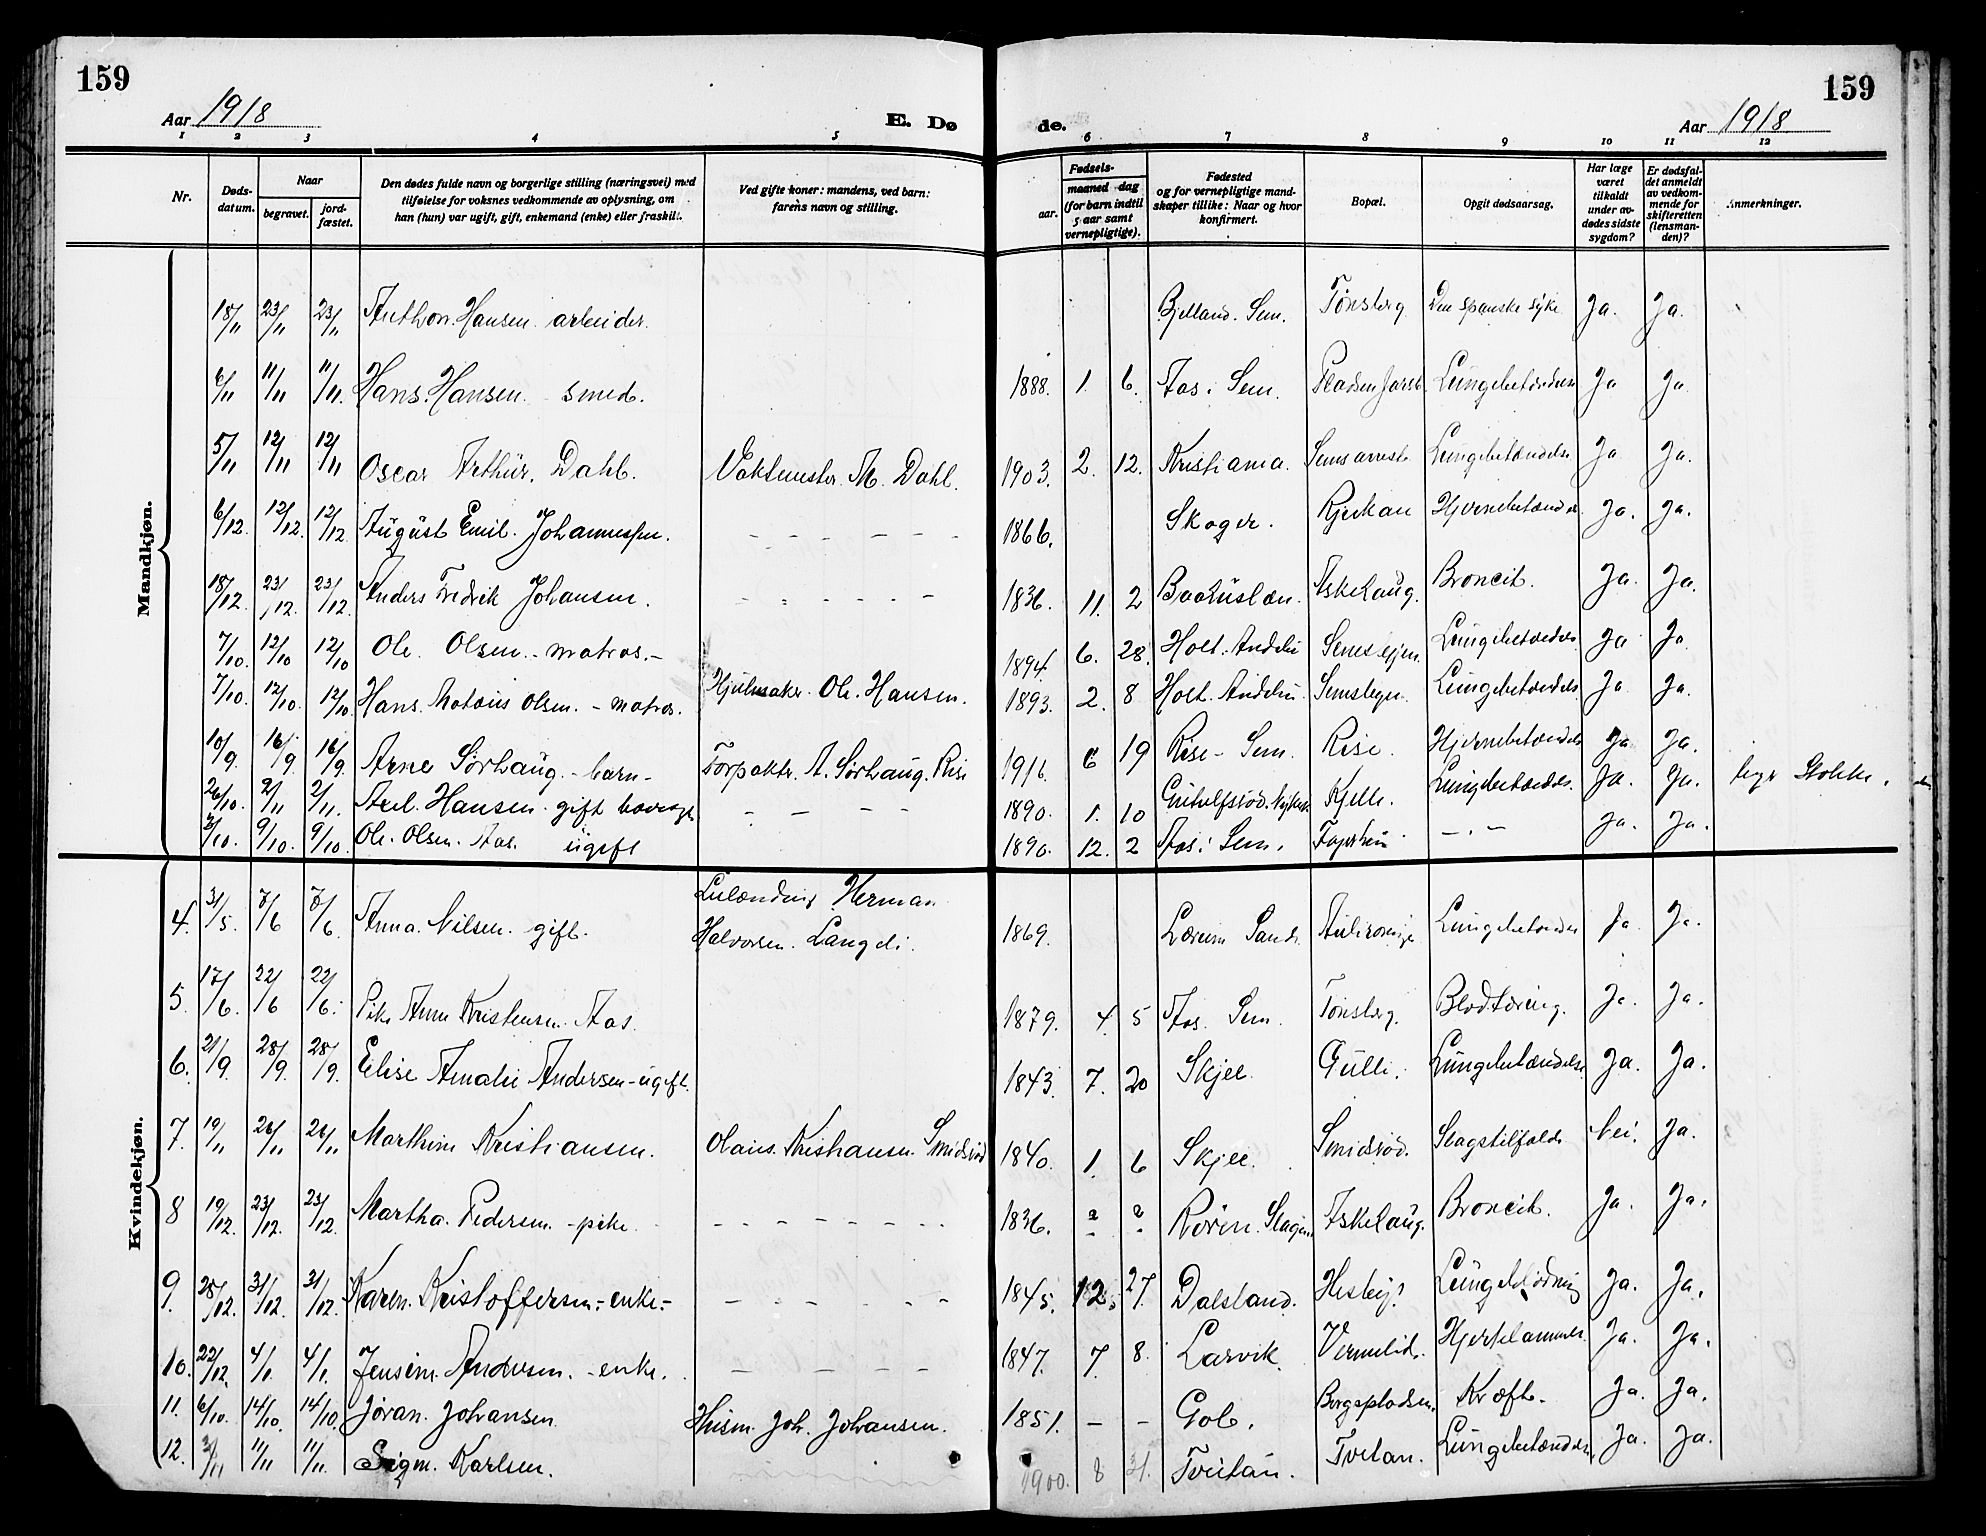 159
159
Aar 1918
E. Dø
de.
Aar 1918
1 2 3 4 5 6 7 8 9 10 11 12
Nr.
Døds-
datum.
Naar
begravet.
jord-
fæstet.
Den dødes fulde navn og borgerlige stilling (næringsvei) med
tilføielse for voksnes vedkommende av oplysning, om
han (hun) var ugift, gift, enkemand (enke) eller fraskilt.
Ved gifte koner: mandens, ved barn:
farens navn og stilling.
Fødsels-
aar.
maaned dag
(for barn indtil
5 aar samt
vernepligtige).
Fødested
og for vernepligtige mand-
skaper tillike: Naar og hvor
konfirmert.
Bopæl.
Opgit dødsaarsag.
Har læge
været
tilkaldt
under av-
dødes sidste
sygdom?
Er dødsfal-
det anmeldt
av vedkom-
mende for
skifteretten
(lensman-
den)?
Anmerkninger.
Mandkjøn.
18/11 23/11 23/11 Anthon Hansen arbeider. Bjelland. Sem. Tønsberg Den spanske syke Ja. Ja.
6/11 11/11 11/11. Hans Hansen smed. 1888. 1. 6. Aas i Sem. Lungebetændelse Ja Ja
5/11 12/11 12/11 Oscar Arthur Dahl. Vaktmester M. Dahl. 1903. 2. 12. Kristiania. Sems arrest Lungebetændelse Ja Ja.
6/12. 12/12. 12/12 August Emil Johannessen. - - - - - - 1866. Skoger. Rjukan Hjernebetændelse Ja. Ja.
18/12. 23/12. 23/12. Anders Fredrik Johansen. - - - - - - 1836. 11. 2 Baahuslen. Askehaug. Broncit. Ja. Ja.
7/10. 12/10 12/10 Ole Olsen - matros. - 1894. 6. 28. Holt. Andebu Semsbyen. Lungebetændelse Ja Ja
7/10. 12/10. 12/10. Hans Mataus Olsen. - matros. Hjulmaker Ole Hansen. 1893. 2. 8 Holt. Andebu Semsbyen Lungebetændelse Ja Ja.
10/9. 16/9 16/9. Arne Sørhaug. - barn - Forpakter A. Sørhaug. Rise 1916. 6 19 Rise - Sem. Rise. Hjernebetændelse Ja. Ja.
26/10. 2/11 2/11. Axel Hansen gift - - - - 1890. 1. 10 Kjelle. Lungebetændelse. Ja. Ja. Stokke.
2/10. 9/10. 9/10. Ole Olsen. Aas. ugift 1890. 12. 2 Aas i Sem. Fagerheim - " - Ja. Ja.
Kvindekjøn.
4. 31/5. 7/6 7/6. Anna Nilsen. gift. Herman
Halvorsen. 1869. Lungebetændelse Ja. Ja.
5. 17/6. 22/6 22/6. Pike Anna Kristensen Aas. 1879. 4. 5 Aas. Sem. Tønsberg. Blodtæring. Ja. Ja.
6. 21/9. 28/9. 28/9. Elise Amalie Andersen - ugift. 1843. 7. 20 Skjee. Gulli. Lungebetændelse. Ja. Ja.
7. 19/11 26/11 26/11 Marthine Kristiansen. Olaus Kristiansen. Smidsrød 1840. 1. 6 Skjee. Smidsrød. Slagtilfælde Nei. Ja.
8 19/12. 23/12. 23/12. Martha Pedersen - pike. - - - - - - - - 1836. ? ? Roren. Slagen. Askehaug. Broncit. Ja. Ja.
9. 28/12. 31/12. 31/12. Karen Kristoffersen - enke. - - - - - - - 1845. 12. 27. Dalsland. Hesby. Lungeblødning Ja. Ja.
10. 22/12. 4/1. 4/1. Jensine Andersen. - enke. - - - - - 1847. 7. 8. Larvik. Vermelid. Hjertelammelse Ja. Ja.
11. 6/10. 14/10. 14/10. Jøran Johansen. Husm. Joh. Johansen. 1851. - - Gol. Bergspladsen. Kræft. Ja. Ja.
12. 3/11 11/11 11/11. Sigm. Karlsen. 1900. 8 31. Tveitan. Tveitan. Lungebetændelse Ja. Ja.